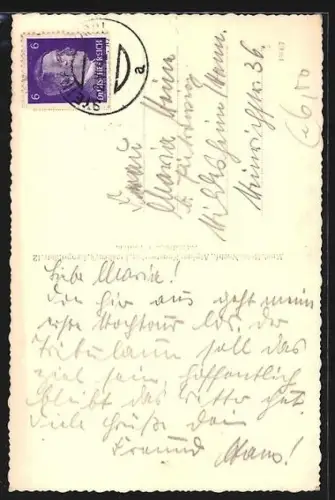 6
6
DEUTSCHES REICH
a
Frau
Maria
Hildesheim Hann.
Heinrichstr. 36.
6,00
Liebe Maria!
Von hier aus geht meine
erste Hochtour los, der
Tribulaun soll das
Ziel sein, hoffentlich
bleibt das Wetter gut.
Viele Grüße Dein
Freund Hans!